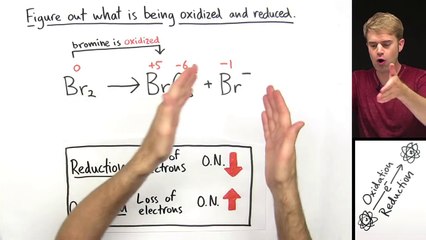 Figure out what is being oxidized and reduced.
bromine is oxidized
0 +5 -6 -1
Br₂ ⟶ Br + Br⁻
Reduction of O.N.
Loss of electrons O.N.
electrons
Oxidation
e⁻
Reduction